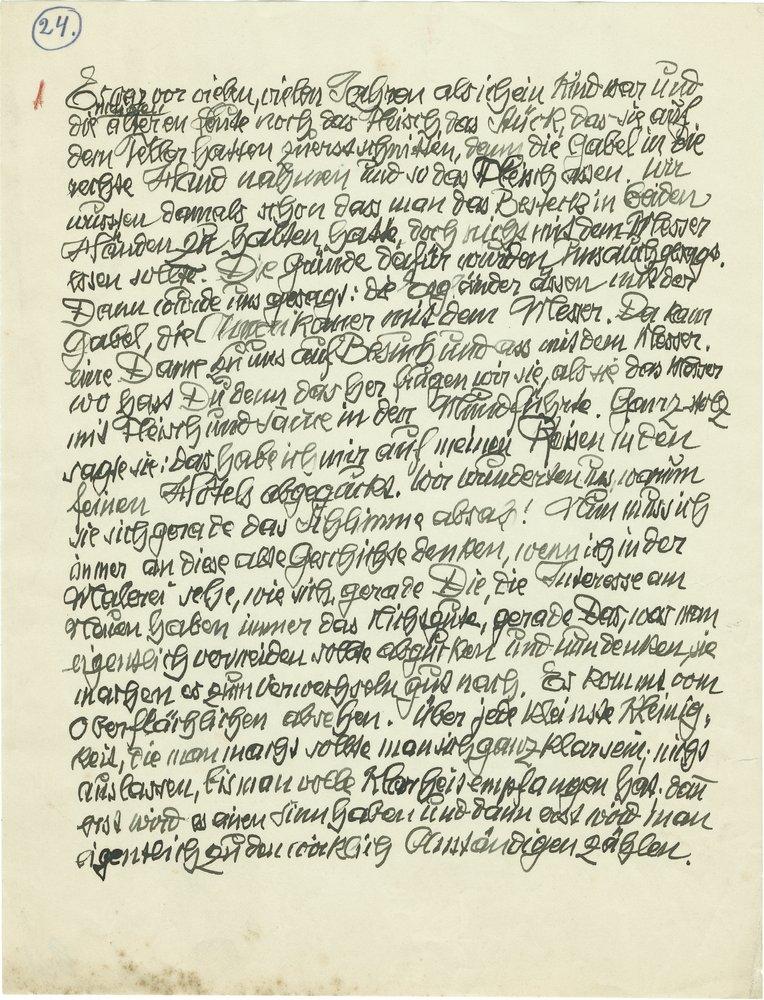 24.
Es war vor vielen, vielen Jahren als ich ein Kind war und
die älteren Leute noch das Fleisch das Stück, das sie auf
dem Teller hatten zuerst schnitten, dann die Gabel in die
rechte Hand nahmen und so das Fleisch assen. Wir
wussten damals schon dass man das Besteck in beiden
Händen zu halten hatte, doch nichts mit dem Messer
essen sollte. Die Gründe dafür wurden uns auch gesagt.
Dann wurde uns gesagt: die assen mit der
Gabel, die mit dem Messer. Da kam
eine Dame zu uns auf Besuch und ass mit dem Messer.
wo hast Du denn das her fragen wir sie, als sie das Messer
mit Fleisch und Sauce in den Mund führte. Ganz stolz
sagte sie: das habe ich mir auf meinen Reisen in den
feinen Hotels abgeguckt. Wir wunderten uns, warum
sie sich gerade das Schlimme absah! Nun muss ich
immer an diese alte Geschichte denken, wenn ich in der
Malerei sehe, wie sich gerade Die, die Interesse am
Neuen haben immer das Nichtgute, gerade Das, was man
eigentlich vermeiden sollte abgucken und nun denken, sie
machen es zum Verwechseln gut nach. Es kommt vom
Oberflächlichen absehen. Über jede kleinste Kleinig-
keit, die man macht sollte man sich ganz klar sein; nichts
auslassen, bis man volle Klarheit empfangen hat. dann
erst wird es einen Sinn haben und dann erst wird man
eigentlich zu den wirklich Anständigen zählen.